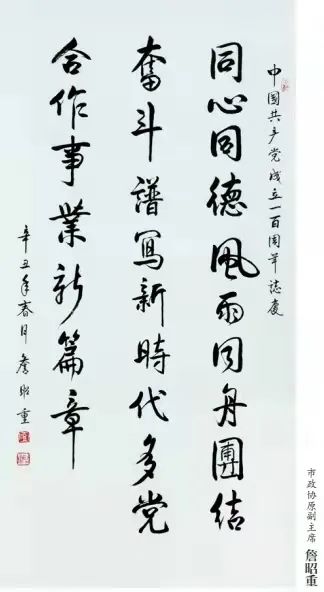 中国共产党成立一百周年誌慶
同心同德風雨同舟團结
奮斗譜寫新時代多党
合作事業新篇章
辛丑年春月詹昭重
市政协原副主席 詹昭重